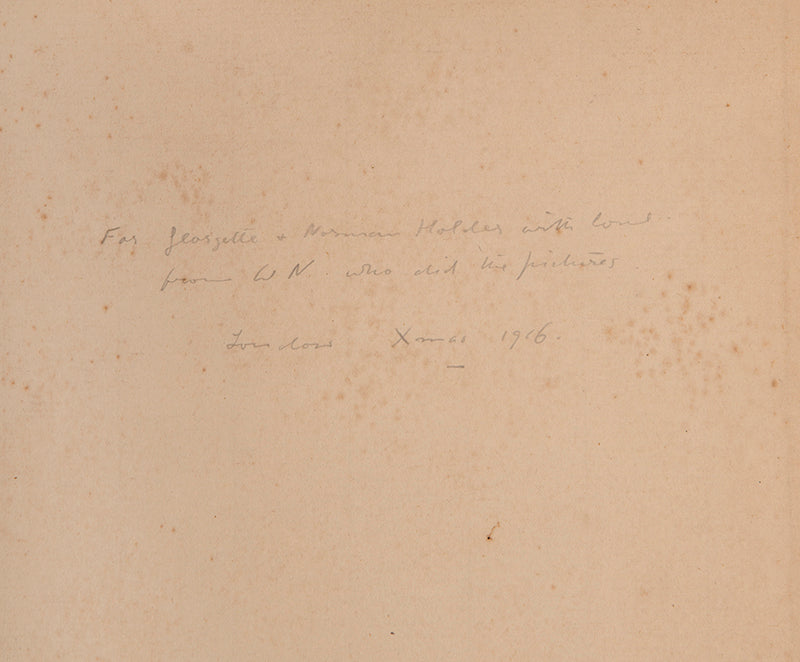 For Georgette & Norman Holder with love
from W N. who did the pictures
London Xmas 1916.